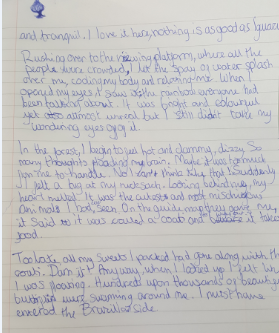 and tranquil. I love it here, nothing is as good as Iguazu
Rushing over to the viewing platform, where all the
people were crowded, I let the spray of water splash
over me, cooling my body and relaxing me. When I
opened my eyes I saw the rainbow everyone had
been talking about. It was bright and colourful
yet almost unreal but I still didn't take my
wandering eyes off it.
In the forest, I began to feel hot and clammy, dizzy. So
many thoughts floating my brain. Maybe it was too much
for me to handle. Not I think that. Suddenly
I felt a tug at my rucksack. Looking behind me, my
heart melted. It was the cutest and most mischievous
animals I had seen. On the guide map they gave me,
it said it was called a coati and it takes
food.
Too late, all my sweets I packed had gone along with the
coati. Damn it! Anyway, when I looked up I felt like
I was floating. Hundreds upon thousands of beautiful
butterflies were swarming around me. I must have
entered the Brazilian side.